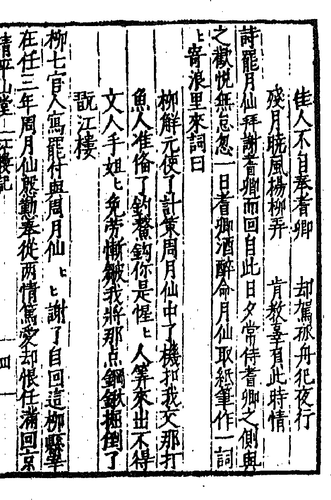 佳人不自奉耆卿　却駕孤舟犯夜行
殘月曉風楊柳岸　肯教辜負此時情
詩罷月仙拜謝耆卿而回自此日夕常侍耆卿之側與
之歡悅無怠忽一日耆卿酒醉命月仙取紙筆作一詞
〻寄浪里來詞曰
柳解元使了計策周月仙中了機扣我交那打
魚人准俻了釣鰲鈎你是惺〻人筭來出不得
文人手姐〻免勞慚皺我將那点鋼鍬掘倒了
翫江樓
柳七官人寫罷付與周月仙〻〻謝了自回這柳縣宰
在任三年周月仙慇懃奉從两情篤愛却恨任滿回京
清平山堂　江樓記　四